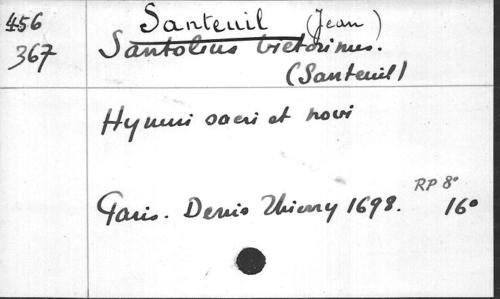 456 Santeuil (Jean)
367 Santolius victorinus.
(Santeuil)
Hymni sacri et novi
RP 8°
Paris. Denis Thierry 1698. 16°